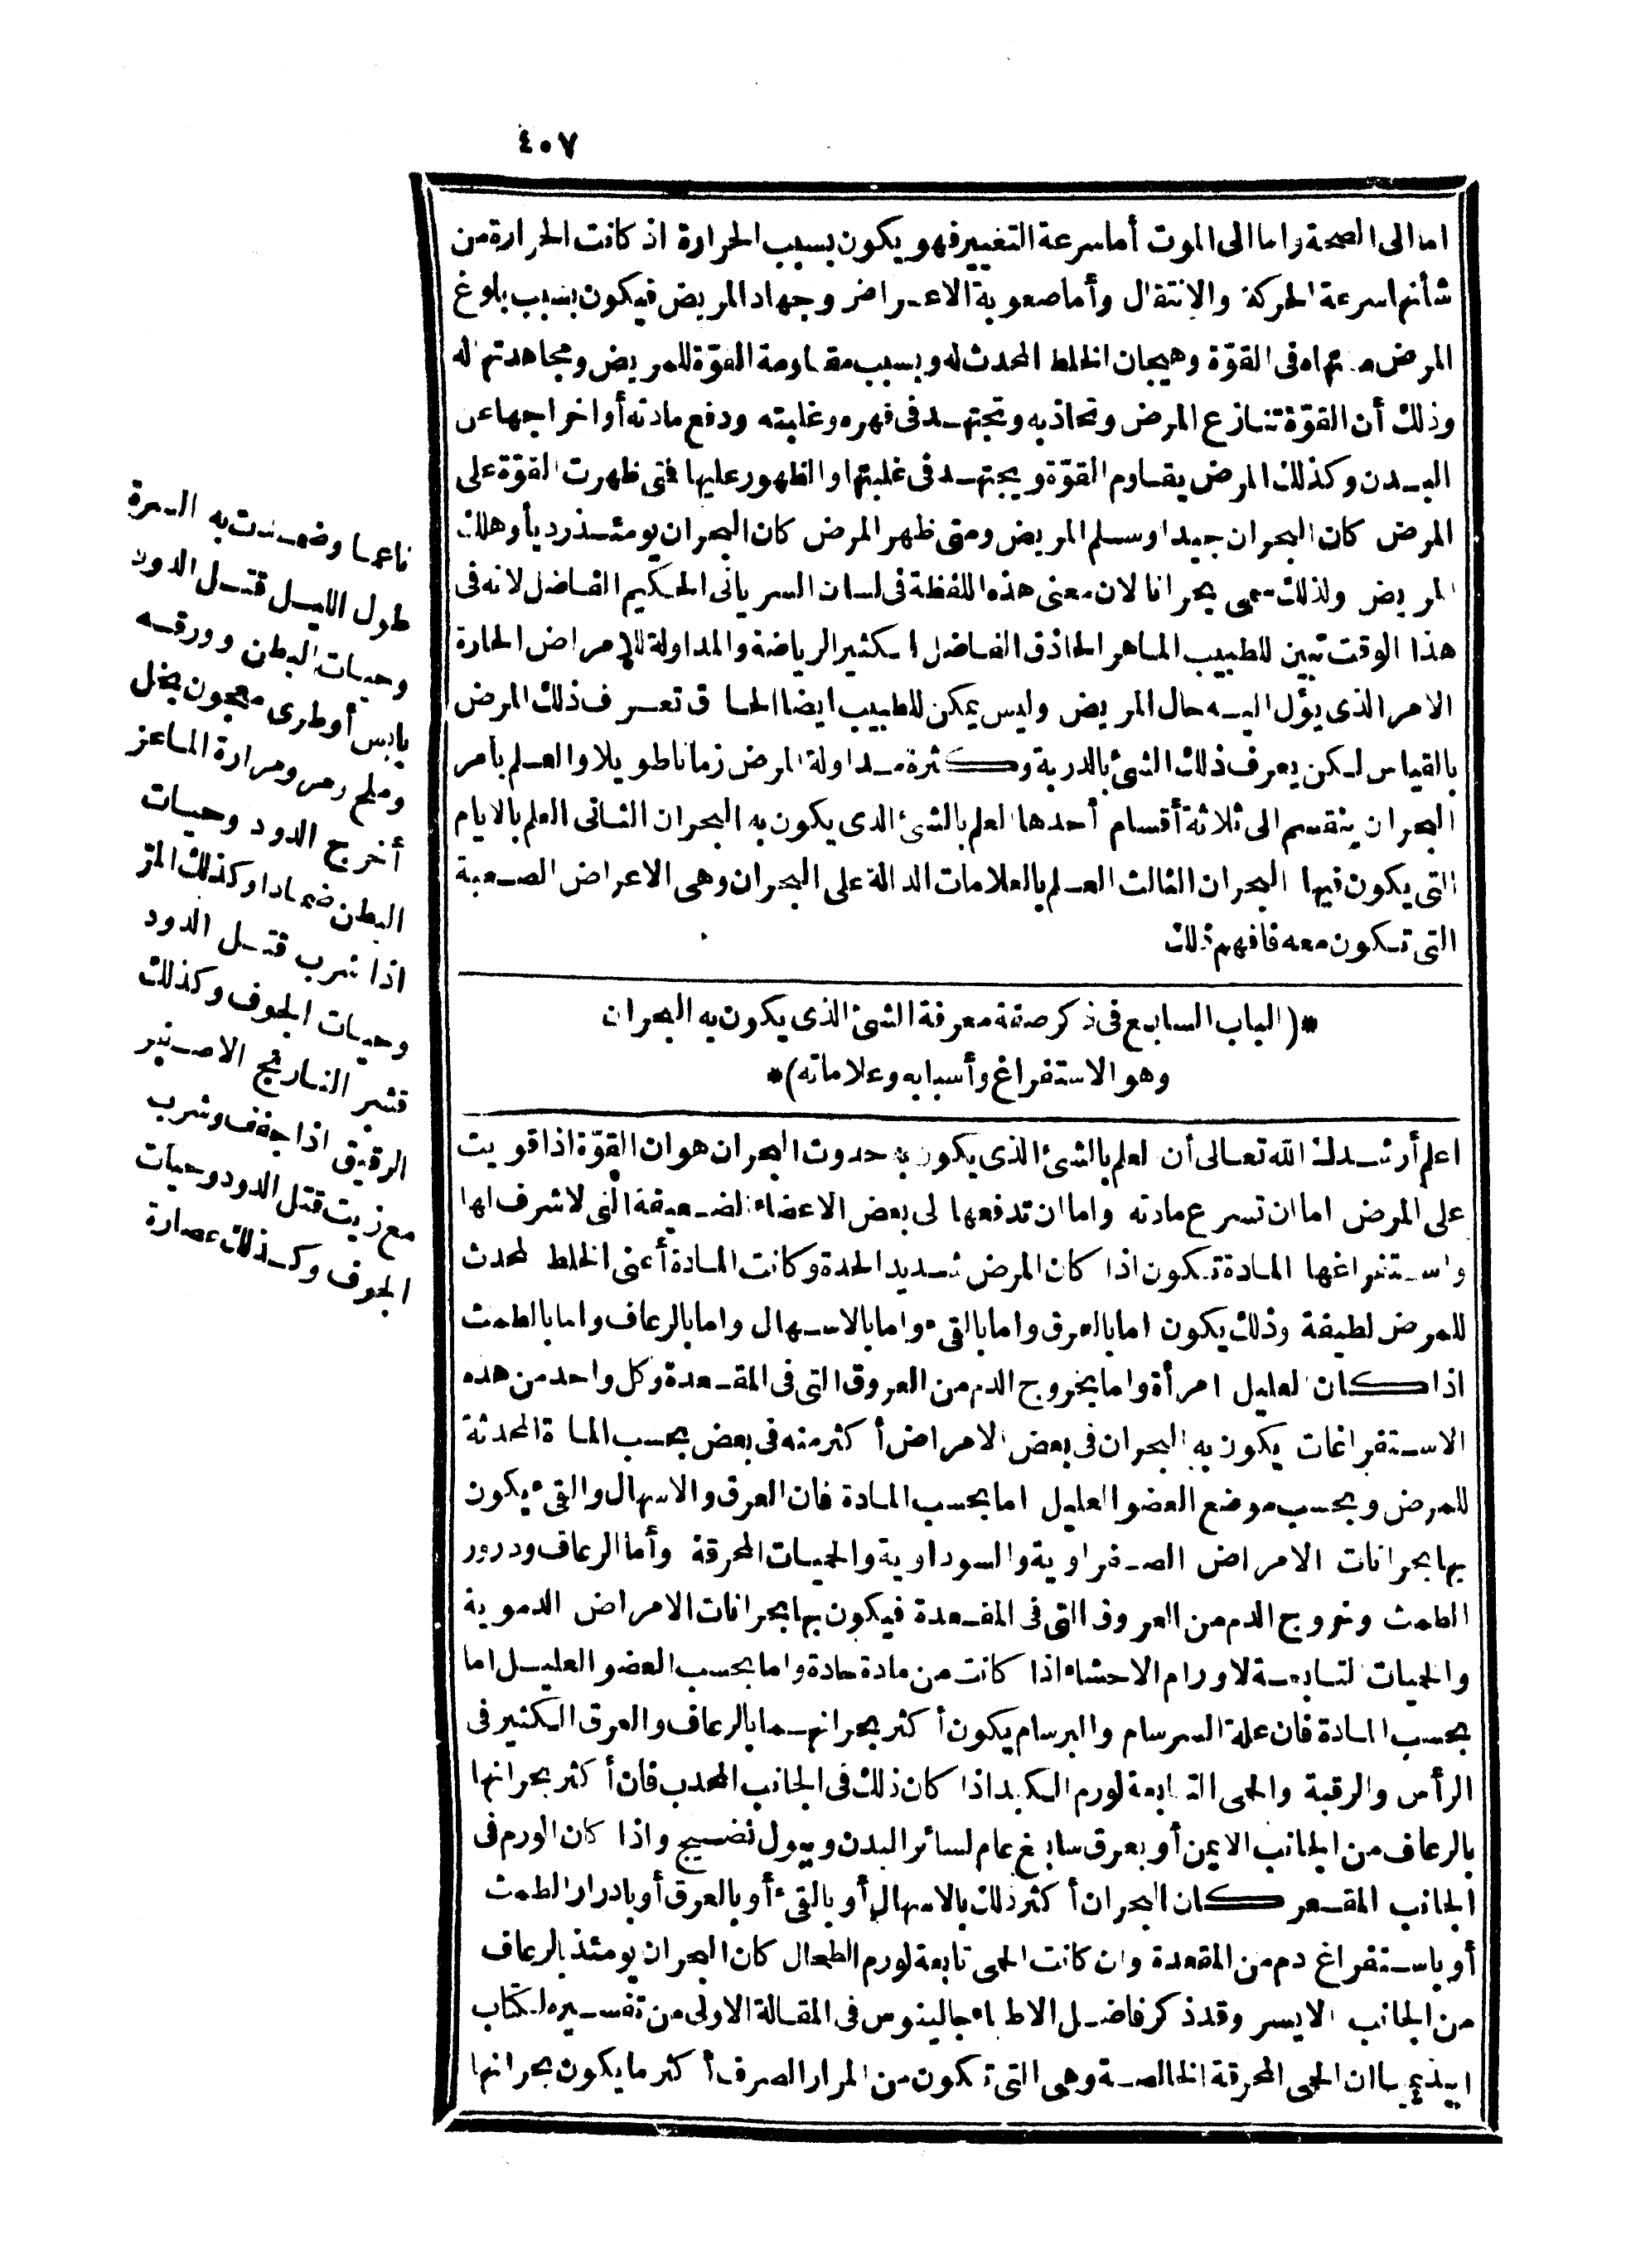 ٤٠٧
اما الى الصحة واما الى الموت أما سرعة التغيير فهو يكون بسبب الحرارة اذ كانت الحرارة من
شأنها سرعة الحركة والانتقال وأما صعوبة الاعراض وجهاد المريض فيكون بسبب بلوغ
المرض منتهاه فى القوّة وهيجان الخلط المحدث له وبسبب مقاومة القوّة للمريض ومجاهدتها له
وذلك أن القوّة تنازع المرض وتجاذبه وتجتهد فى قهره وغلبته ودفع مادته أو اخراجها عن
البدن وكذلك المرض يقاوم القوّة ويجتهد فى غلبتها والظهور عليها فمتى ظهرت القوّة على
المرض كان البحران جيدا وسلم المريض ومتى ظهر المرض كان البحران يومئذ رديأ وهلك
المريض ولذلك سمى بحرانا لان معنى هذه اللفظة فى لسان السريانى الحكيم الفاضل لانه فى
هذا الوقت تبين للطبيب الماهر الحاذق الفاضل الكثير الرياضة والمداولة للامراض الحارة
الامر الذى يؤل اليه حال المريض وليس يمكن للطبيب ايضا الحاذق تعرف ذلك المرض
بالقياس لكن يعرف ذلك الشئ بالدربة وكثرة مداولة المرض زمانا طويلا والعلم بأمر
البحران ينقسم الى ثلاثة أقسام أحدها العلم بالشئ الذى يكون به البحران الثانى العلم بالايام
التى يكون فيها البحران الثالث العلم بالعلامات الدالة على البحران وهى الاعراض الصعبة
التى تكون معه فافهم ذلك
*(الباب السابع فى ذكر صفة معرفة الشئ الذى يكون به البحران
وهو الاستفراغ وأسبابه وعلاماته)*
اعلم أرشدك الله تعالى أن العلم بالشئ الذى يكون به حدوث البحران هو ان القوّة اذا قويت
على المرض اما ان تسرع مادته واما ان تدفعها الى بعض الاعضاء الضعيفة التى لا شرف لها
واستفراغها المادة تكون اذا كان المرض شديد الحدة وكانت المادة أعنى الخلط المحدث
للمرض لطيفة وذلك يكون اما بالعرق واما بالقىء واما بالاسهال واما بالرعاف واما بالطمث
اذا كان العليل امرأة واما بخروج الدم من العروق التى فى المقعدة وكل واحد من هذه
الاستفراغات يكون به البحران فى بعض الامراض أكثر منه فى بعض بحسب المادة المحدثة
للمرض وبحسب موضع العضو العليل اما بحسب المادة فان العرق والاسهال والقىء يكون
بها بحرانات الامراض الصفراوية والسوداوية والحميات المحرقة وأما الرعاف ودرور
الطمث وخروج الدم من العروق التى فى المقعدة فيكون بها بحرانات الامراض الدموية
والحميات التابعة لاورام الاحشاء اذا كانت من مادة حادة واما بحسب العضو العليل اما
بحسب المادة فان علة السرسام والبرسام يكون أكثر بحرانهما بالرعاف والعرق الكثير فى
الرأس والرقبة والحمى التابعة لورم الكبد اذا كان ذلك فى الجانب المحدب فان أكثر بحرانها
بالرعاف من الجانب الايمن أو بعرق سابغ عام لسائر البدن وببول نضيج واذا كان الورم فى
الجانب المقعر كان البحران أكثر ذلك بالاسهال أو بالقىء أو بالعرق أو بادرار الطمث
أو باستفراغ دم من المقعدة وان كانت الحمى تابعة لورم الطحال كان البحران يومئذ بالرعاف
من الجانب الايسر وقد ذكر فاضل الاطباء جالينوس فى المقالة الاولى من تفسيره لكتاب
ابيذيميا ان الحمى المحرقة الخالصة وهى التى تكون من المرار الصرف أكثر ما يكون بحرانها
ناعما وضمدت به السرة
طول الليل قتل الدود
وحيات البطن وورقه
يابس أو طرى معجون بخل
وملح ومر ومرارة الماعز
أخرج الدود وحيات
البطن ضمادا وكذلك المرّ
اذا شرب قتل الدود
وحيات الجوف وكذلك
قشر النارنج الاصفر
الرقيق اذا جفف وشرب
مع زيت قتل الدود وحيات
الجوف وكذلك عصارة